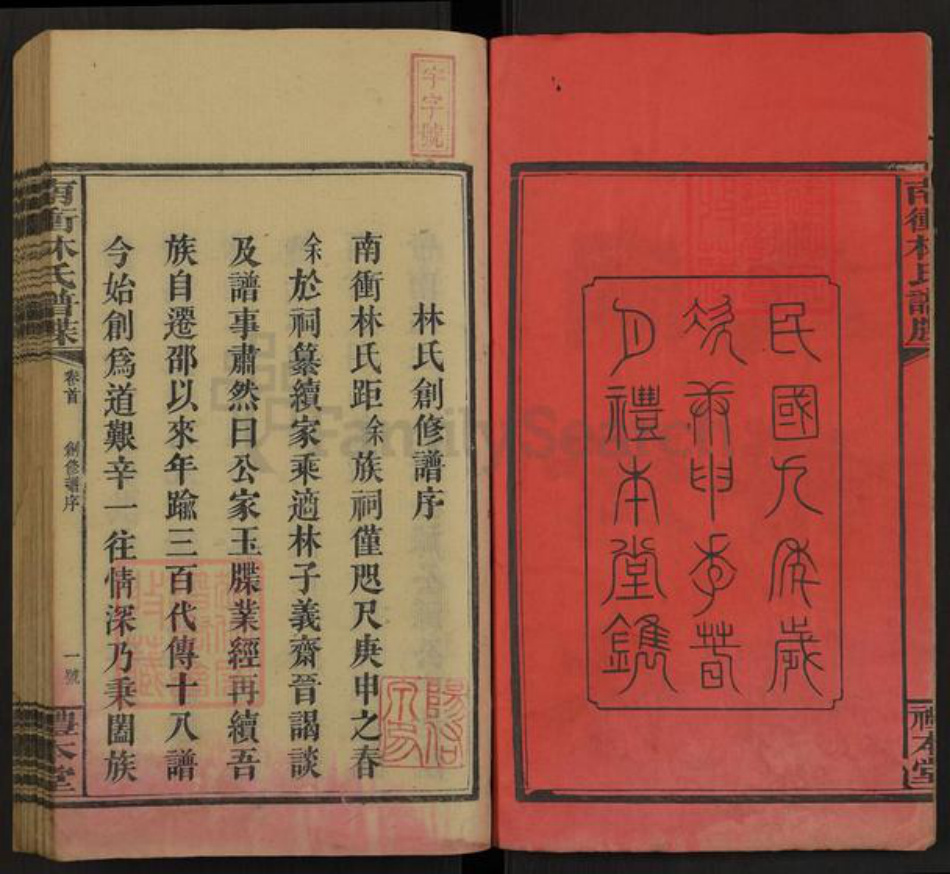 南衝林氏譜牒
禮本堂
民國九年歲
次庚申季春
月禮本堂鐫
字號
林氏創修譜序
南衝林氏距余族祠僅咫尺庚申之春
余於祠纂續家乘適林子義齋晉謁談
及譜事肅然曰公家玉牒業經再續吾
族自遷邵以來年踰三百代傳十八譜
今始創爲道艱辛一往情深乃秉闔族
南衝林氏譜牒
卷首
創修譜序
一號
禮本堂
FamilySearch